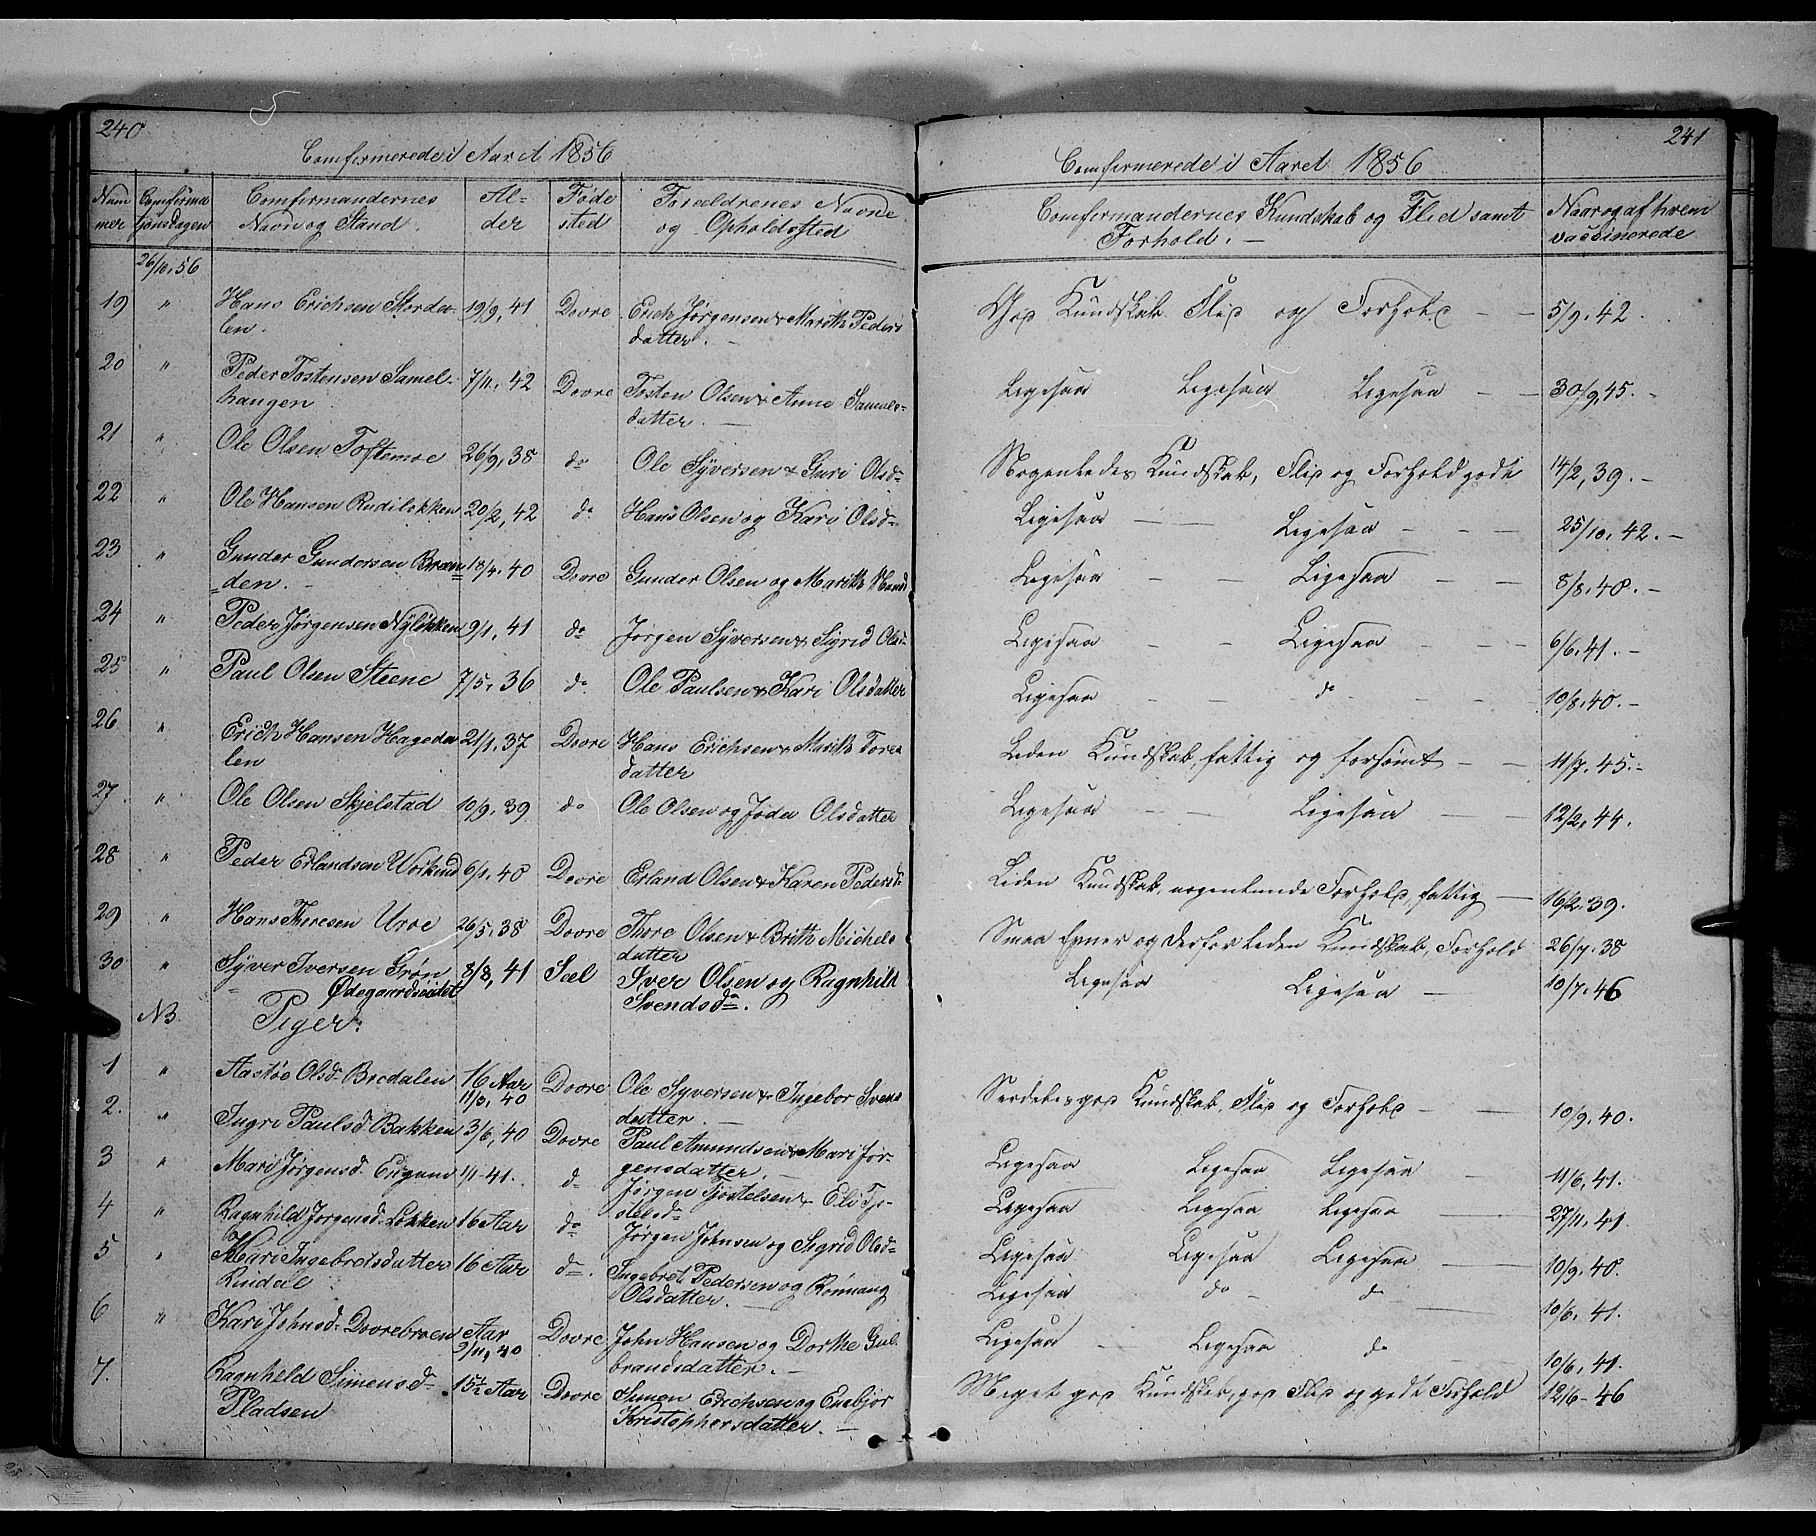 240
Comfermerede i Aaret 1856
Num
mer
Comferma
tjonsdagen
Comfermandernes
Navn og Stand.
Al-
der
Føde
sted
Foræeldrenes Navne
og Opholdssted
26/10, 56
19 " Hans Erichsen Storda- 19/9, 41 Dovre Erich Jørgensen & Marith Peders
len. datter. —
20 " Peder Tostensen Samel- 7/11, 42 Dovre Tosten Olsen & Anne Samuels-
haugen datter. —
21 " Ole Olsen Toftemoe 26/9, 38 do Ole Syversen & Guri Olsd-
22 " Ole Hansen Rudiløkken 20/2, 42 do Hans Olsen og Kari Olsd-
23 " Gunder Gundersen Bræn 18/4, 40 Dovre Gunder Olsen og Marith Hansd
=den. -
24 " Peder Jørgensen Nyløkken 9/1, 41 do Jørgen Syversen & Sigrid Olsd-
25 " Paul Olsen Steene 7/5, 36 do Ole Paulsen & Kari Olsdatter
26 " Erich Hansen Hageda 21/1, 37 Dovre Hans Erichsen & Marith Tores
len datter
27 " Ole Olsen Skjelstad 10/9, 39 do Ole Olsen og Joda Olsdatter
28 " Peder Erlandsen 6/1, 40 Dovre Erland Olsen & Karen Pedersd
29 " Hans Thoresen Uroe 26/5, 38 Dovre Thore Olsen & Brith Michels
datter
30 " Syver Iversen Grøn 8/8, 41 Sæl Iver Olsen og Ragnhild
Ødegaardseidet Svendsd-.
NB. Piger:
1 " Aastøo Olsd- Bredalen 16 Aar Dovre Ole Syversen & Ingebor Svens
11/3, 40 datter. —
2. " Ingri Paulsd Bakken 3/6, 40 Dovre Paul Amundsen & Mari Jør-
gensdatter —
3 " Mari Jørgensd- 1/1-41. do Jørgen Tjostelsen & Eli Tjo-
stelsd-
4 " Ragnhild Jørgensd- Løkken 16 Aar do Jørgen Johnsen og Sigrid Olsd-
5 " Mari Ingebretsdatter 16 Aar do. Ingebret Pedersen og Rønnaug
Rindal Olsdatter. —
6 " Kari Johnsd- Dovrebroen Aar Dovre John Hansen og Dorthe Gul
9/11, 40 brandsdatter. —
7. Ragnhild Simensd- 15½ Aar Dovre Simen Erichsen og Enebjor
Pladsen Kristophersdatter. —
241
Comfermerede i Aaret 1856
Comfermandernes Kundskab og Flid samt
Forhold. —
Naar og af hvem
vaccinerede
God Kundskab Flid og Forhold — — 5/9, 42.
Ligesaa Ligesaa Ligesaa — — 30/9, 45. -
Nogenledes Kundskab, Flid og Forhold godt 14/2, 39. -
Ligesaa — — Ligesaa — — 25/10, 42. -
Ligesaa — — Ligesaa — — 8/8, 40. -
Ligesaa — — Ligesaa — — 6/6, 41. -
Ligesaa — — do — — 10/8, 40. -
Liden Kundskab, fattig og forsømt — — 11/7, 45. -
Ligesaa — — Ligesaa — — 12/2, 44.
Liden Kundskab, nogenlunde Forhold, fattig — 16/2, 39.
Smaa Evner og derfor liden Kundskab, Forhold 26/7, 38
Ligesaa Ligesaa — 10/7, 46
Særdeles god Kundskab, Flid og Forhold — — 10/9, 40.
Ligesaa Ligesaa Ligesaa — 11/6, 41.
Ligesaa Ligesaa Ligesaa — 27/11, 41.
Ligesaa Ligesaa Ligesaa — 10/9, 40.
Ligesaa do - do — 10/6, 41.
Ligesaa - Ligesaa do — 10/6, 41.
Meget god Kundskab, god Flid og godt Forhold 12/6-46